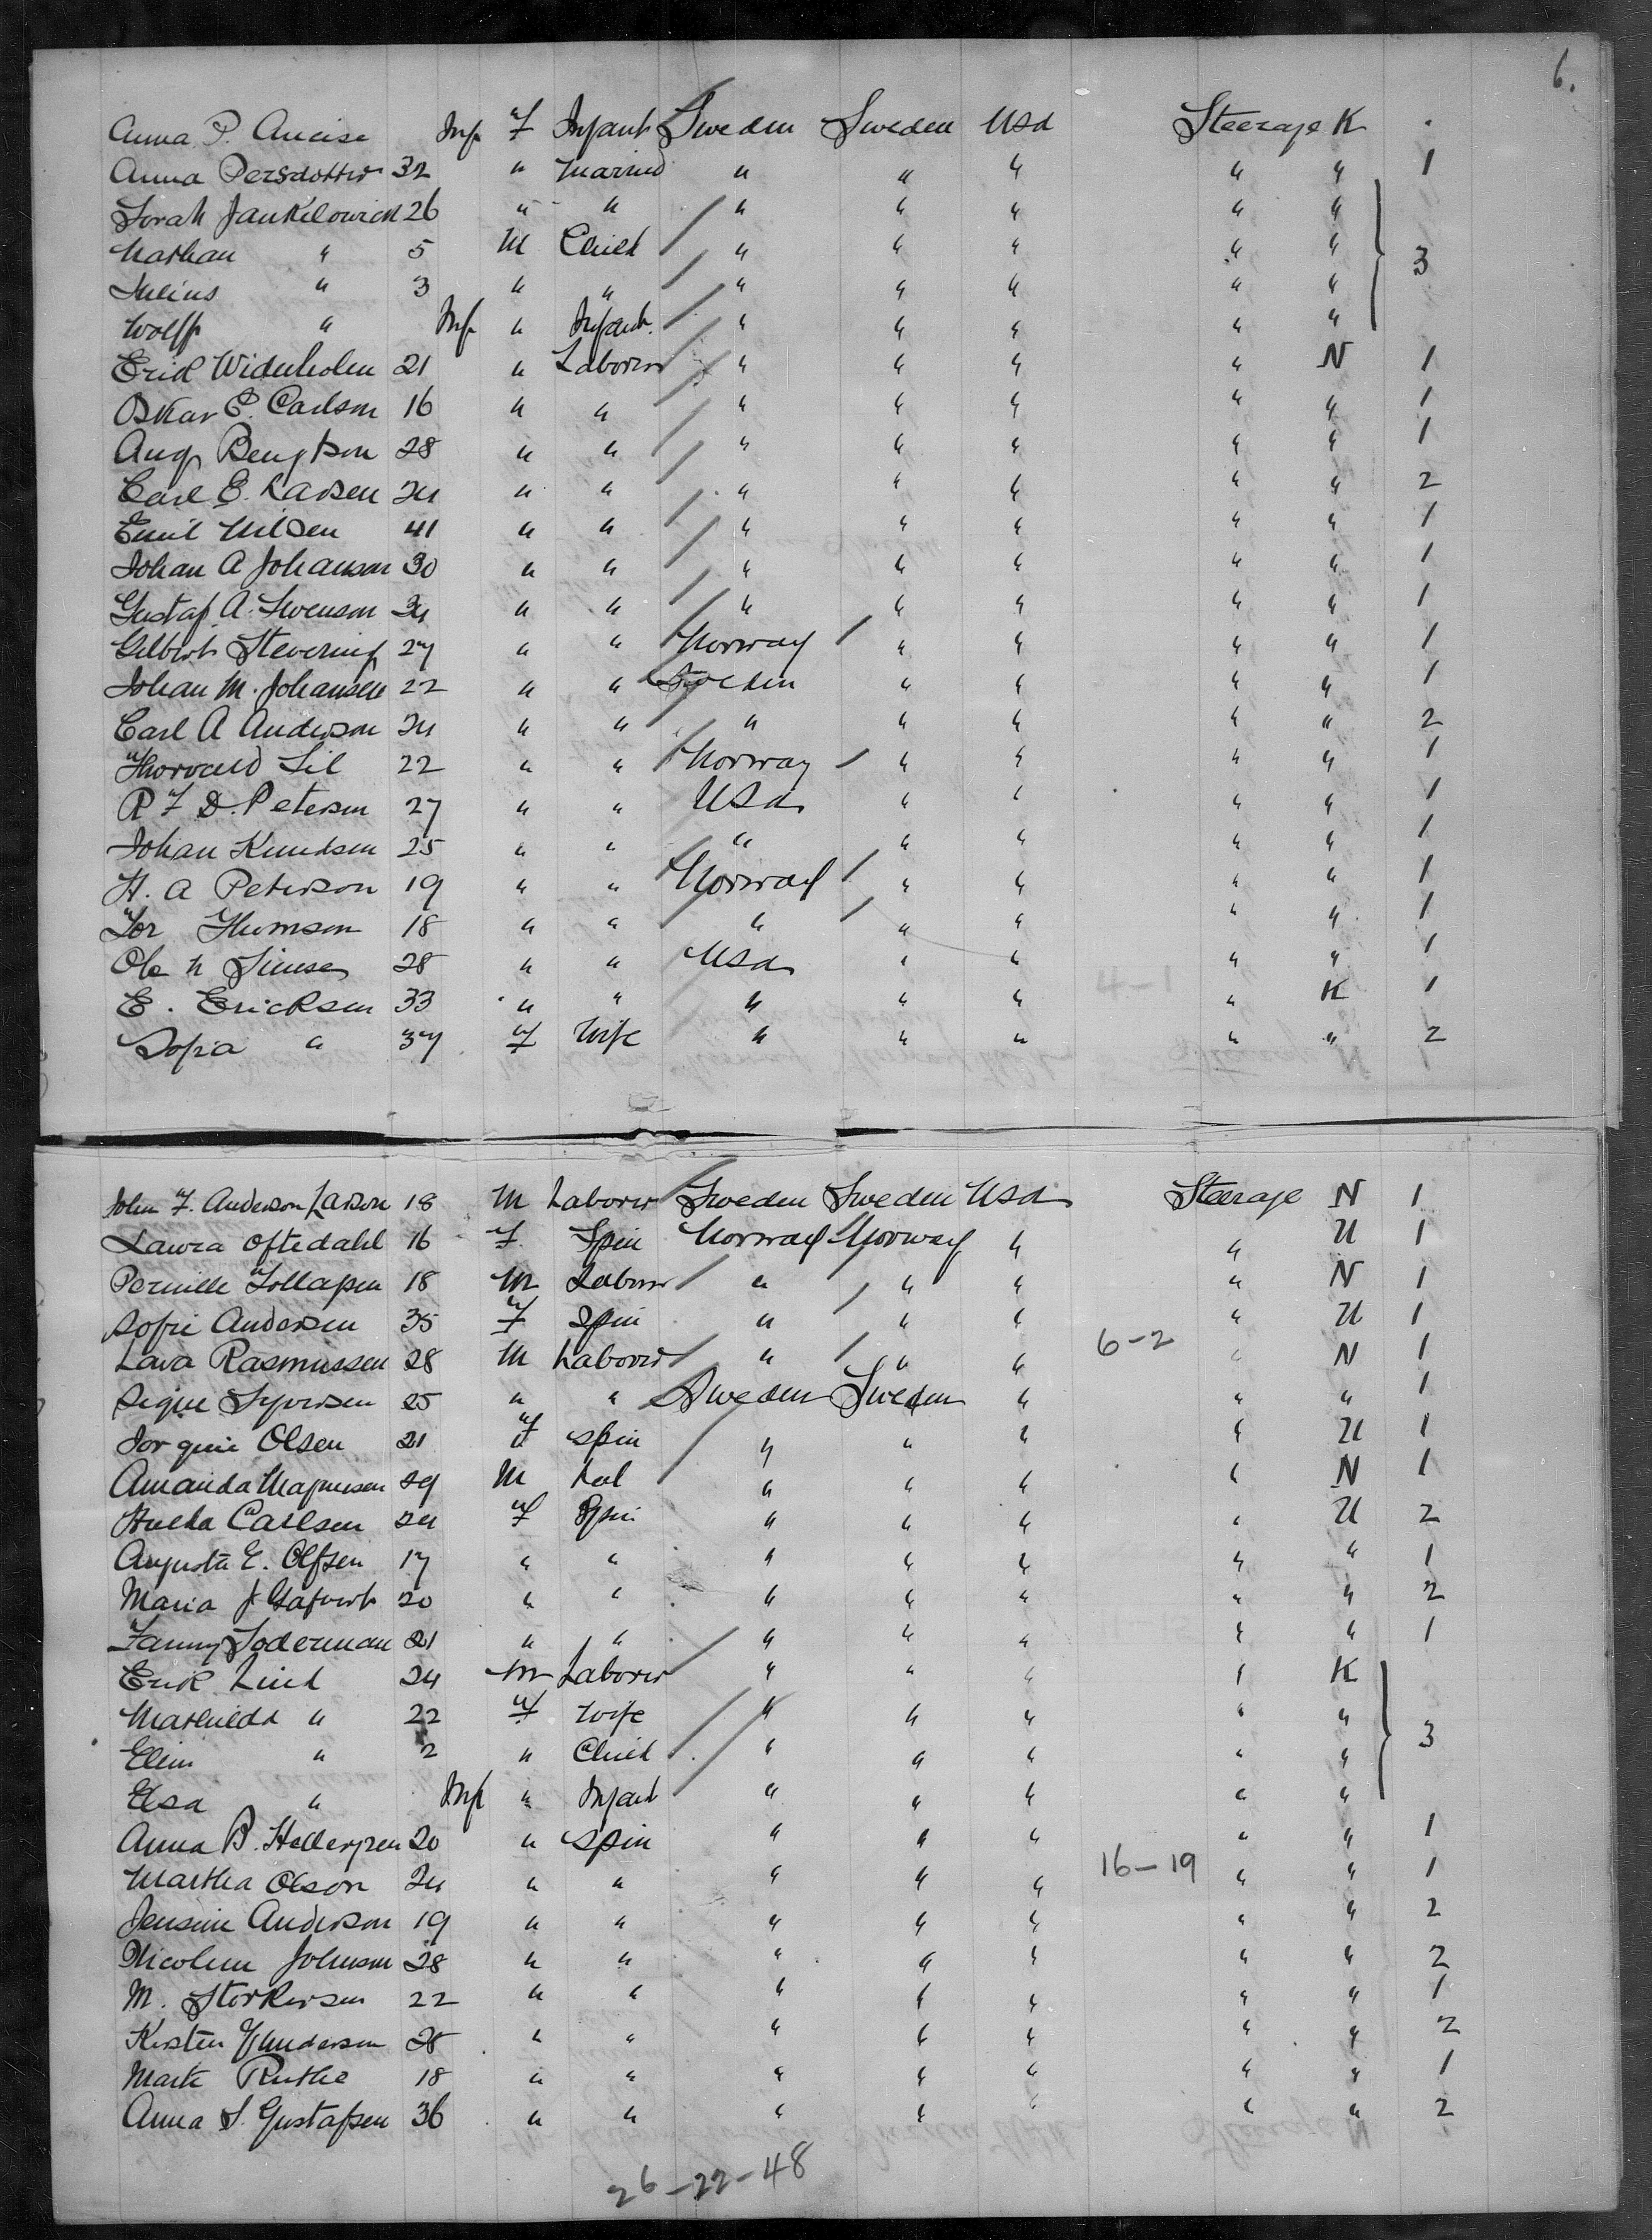 6.
Anna P. Inf F Infant Sweden Sweden Usa Steerage K
Anna Persdotter 32 " Married " " " " " 1
Sorah Jankilowich 26 " " " " " " "
Nathan " 5 M Child " " " " " 3
Julius " 3 " " " " " " "
Wolff " Inf " Infant. " " " " "
Erik Widenholm 21 " Laborer " " " " N 1
Oskar E. Carlson 16 " " " " " " " 1
Aug Bengtson 28 " " " " " " " 1
Carl E. Larsen 24 " " " " " " " 2
Emil Nilsen 41 " " " " " " " 1
Johan A Johanson 30 " " " " " " " 1
Gustaf A. Swenson 34 " " " " " " " 1
Gilbert Stevering 27 " " Norway " " " " 1
Johan M. Johansen 22 " " Sweden " " " " 1
Carl A Anderson 24 " " " " " " " 2
Thorvald Lil 22 " " Norway " " " " 1
P F D. Petersen 27 " " Usa " " " " 1
Johan Knudsen 25 " " " " " " " 1
H. A Peterson 19 " " Norway " " " " 1
Tor Thomson 18 " " " " " " " 1
Ole N 28 " " Usa " " " " 1
E. Ericksen 33 " " " " " 4-1 " K 1
Sofia " 37 F Wife " " " " " 2
John F. Anderson Larson 18 M Laborer Sweden Sweden Usa Steerage N 1
Laura Oftedahl 16 F Spin Norway Norway " " U 1
Pernille 18 M Laborer " " " " N 1
Sofie Andersen 35 F Spin " " " " U 1
Lava Rasmussen 28 M Laborer " " " 6-2 " N 1
Signe 25 " " Sweden Sweden " " " 1
Jorgine Olsen 21 F Spin " " " " U 1
Amanda Magnusen 29 M Lab " " " " N 1
Hulda Carlsen 24 F Spin " " " " U 2
Augusta E. Olfsen 17 " " " " " " " 1
Maria J 20 " " " " " " " 2
Fanny Soderman 21 " " " " " " " 1
Erik Lind 24 M Laborer " " " " K
Mathilda " 22 F Wife " " " " " 3
Elin " 2 " Child " " " " "
Elsa " Inf " Infant " " " " "
Anna B. 20 " Spin " " " " " 1
Martha Olson 24 " " " " " 16-19 " " 1
Jensine Anderson 19 " " " " " " " 2
Nicoline Johnson 28 " " " " " " " 2
M. Storkersen 22 " " " " " " " 1
Kirsten 28 " " " " " " " 2
Marte Ruthe 18 " " " " " " " 1
Anna S. Gustafsen 36 " " " " " " " 2
26-22-48